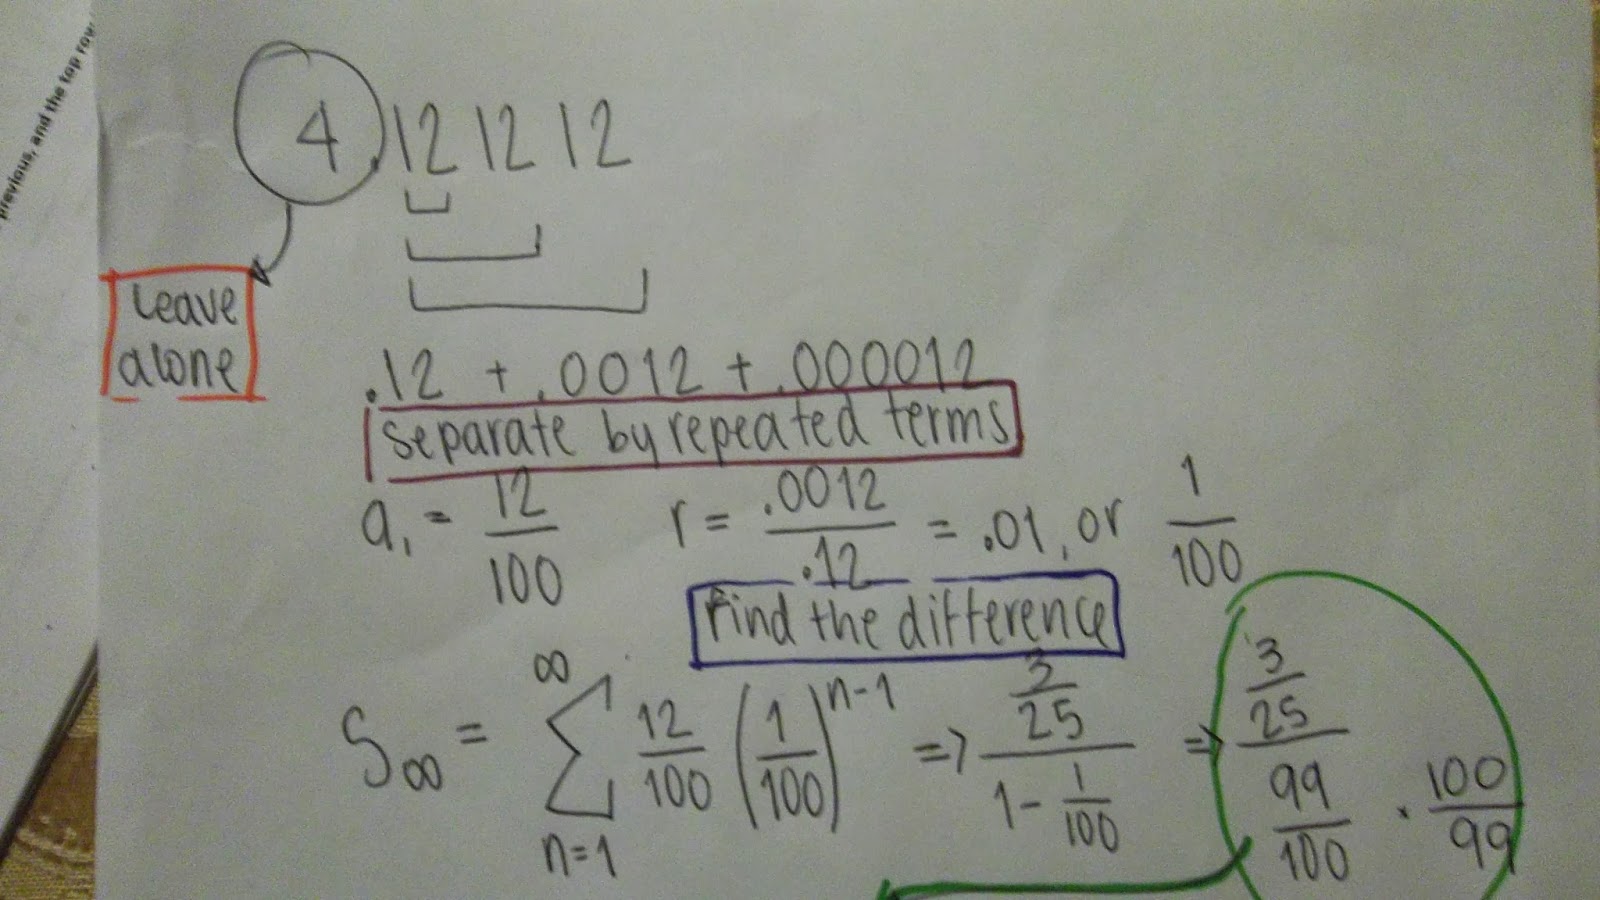 previous, and the top row
4.12 12 12
Leave
alone
.12 + .0012 + .000012
Separate by repeated terms
a₁ = 12/100 r = .0012/.12 = .01, or 1/100
Find the difference
S∞ = ∞ Σ n=1 12/100 (1/100)^n-1 => 3/25 / 1 - 1/100 => 3/25 / 99/100 · 100/99